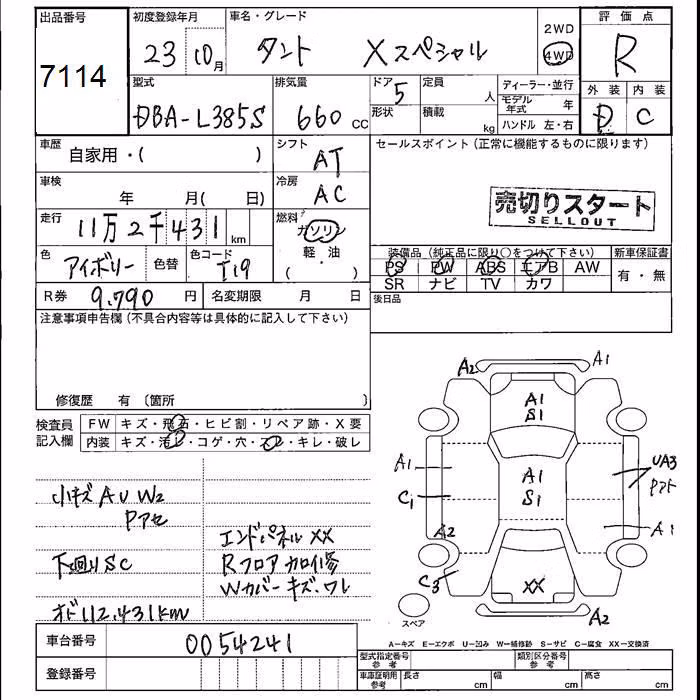 出品番号 初度登録年月 車名・グレード 2WD 評価点
7114 23 10月 タント Xスペシャル 4WD R
型式 排気量 ドア 定員 ディーラー・並行 外装 内装
DBA-L385S 660 cc 5 人 モデル年式 年 D C
形状 積載 kg ハンドル 左・右
車歴 自家用・( ) シフト AT セールスポイント(正常に機能するものに限ります)
車検 年 月( 日) 冷房 AC
売切りスタート
SELLOUT
走行 11万2千431 km 燃料 ガソリン
軽・油
( )
色 アイボリー 色替 色コード T19
装備品(純正品に限り○をつけて下さい) 新車保証書
PS PW ABS エアB AW 有・無
SR ナビ TV カワ
R券 9.790 円 名変期限 月 日 後日品
注意事項申告欄(不具合内容等は具体的に記入して下さい)
修復歴 有(箇所 )
検査員記入欄 FW キズ・飛石・ヒビ割・リペア跡・X要
内装 キズ・汚レ・コゲ・穴・スレ・キレ・破レ
小キズ A U W2
Pアセ
下廻りSC
オド112.431km
エンドパネル XX
Rフロア カロイ修
Wカバー キズ.ワレ
A2 A1
A1
S1
A1
C1
A1
S1
UA3
Pアト
A2 A1
C3
XX
A2
スペア
A-キズ E-エクボ U-凹み W-補修跡 S-サビ C-腐食 XX-交換済
車台番号 0054241
登録番号
型式指定番号 参考 類別区分番号 参考
車庫証明用 参考 長さ cm 幅 cm 高さ cm